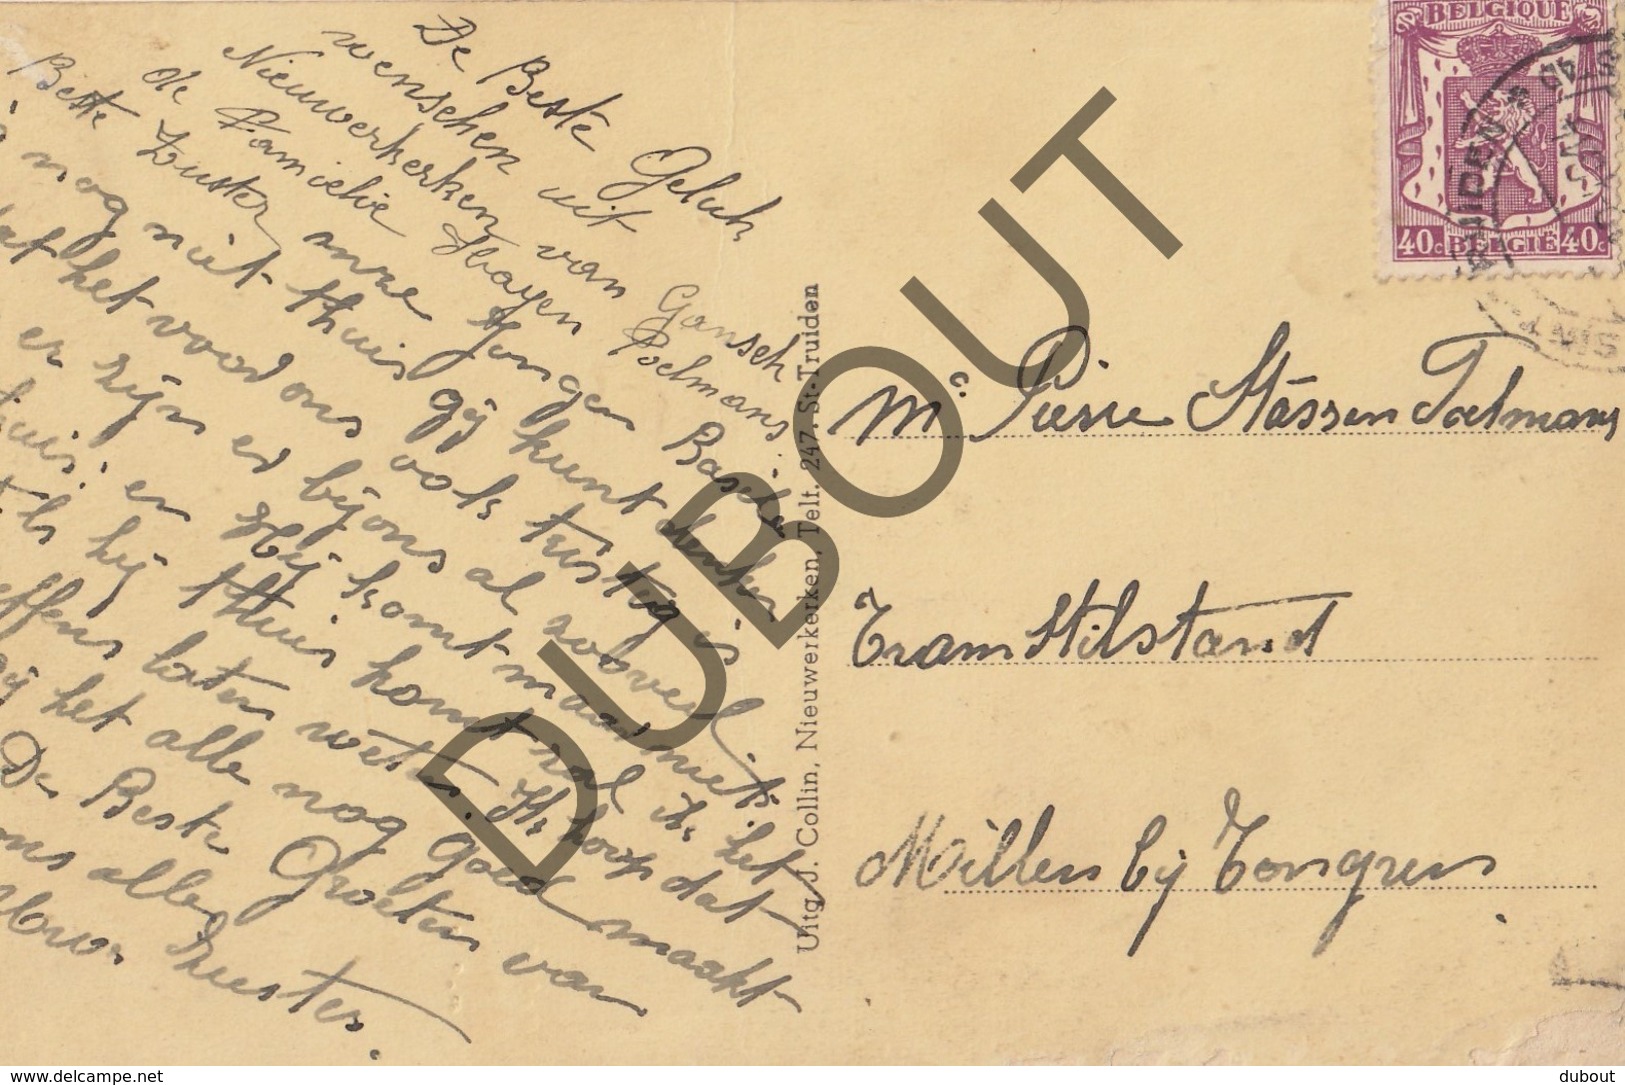 De Beste Geluk
wenschen uit
Nieuwerkerken van Gansch
de Familie Hayen Poelmans.
Beste Zuster onze Jongen Basiel
is nog niet thuis gij kunt denken
dat het vood ons ook trisstig is
er zijn er bij ons al zooveel
thuis en Hij komt maar niet
als hij thuis komt zal ik het
effens laten weten. Ik hoop dat
gij het alle nog goed maakt
De Beste Groeten van
ons alle
Zuster.
BELGIQUE
40c BELGIË 40c
Uitg. J. Collin, Nieuwerkerken, Telf. 247. St-Truiden
Mr. Pierre Stassen Poelmans
Tram Stilstand
Millen bij Tongeren.
DUBOUT
delcampe.net
dubout